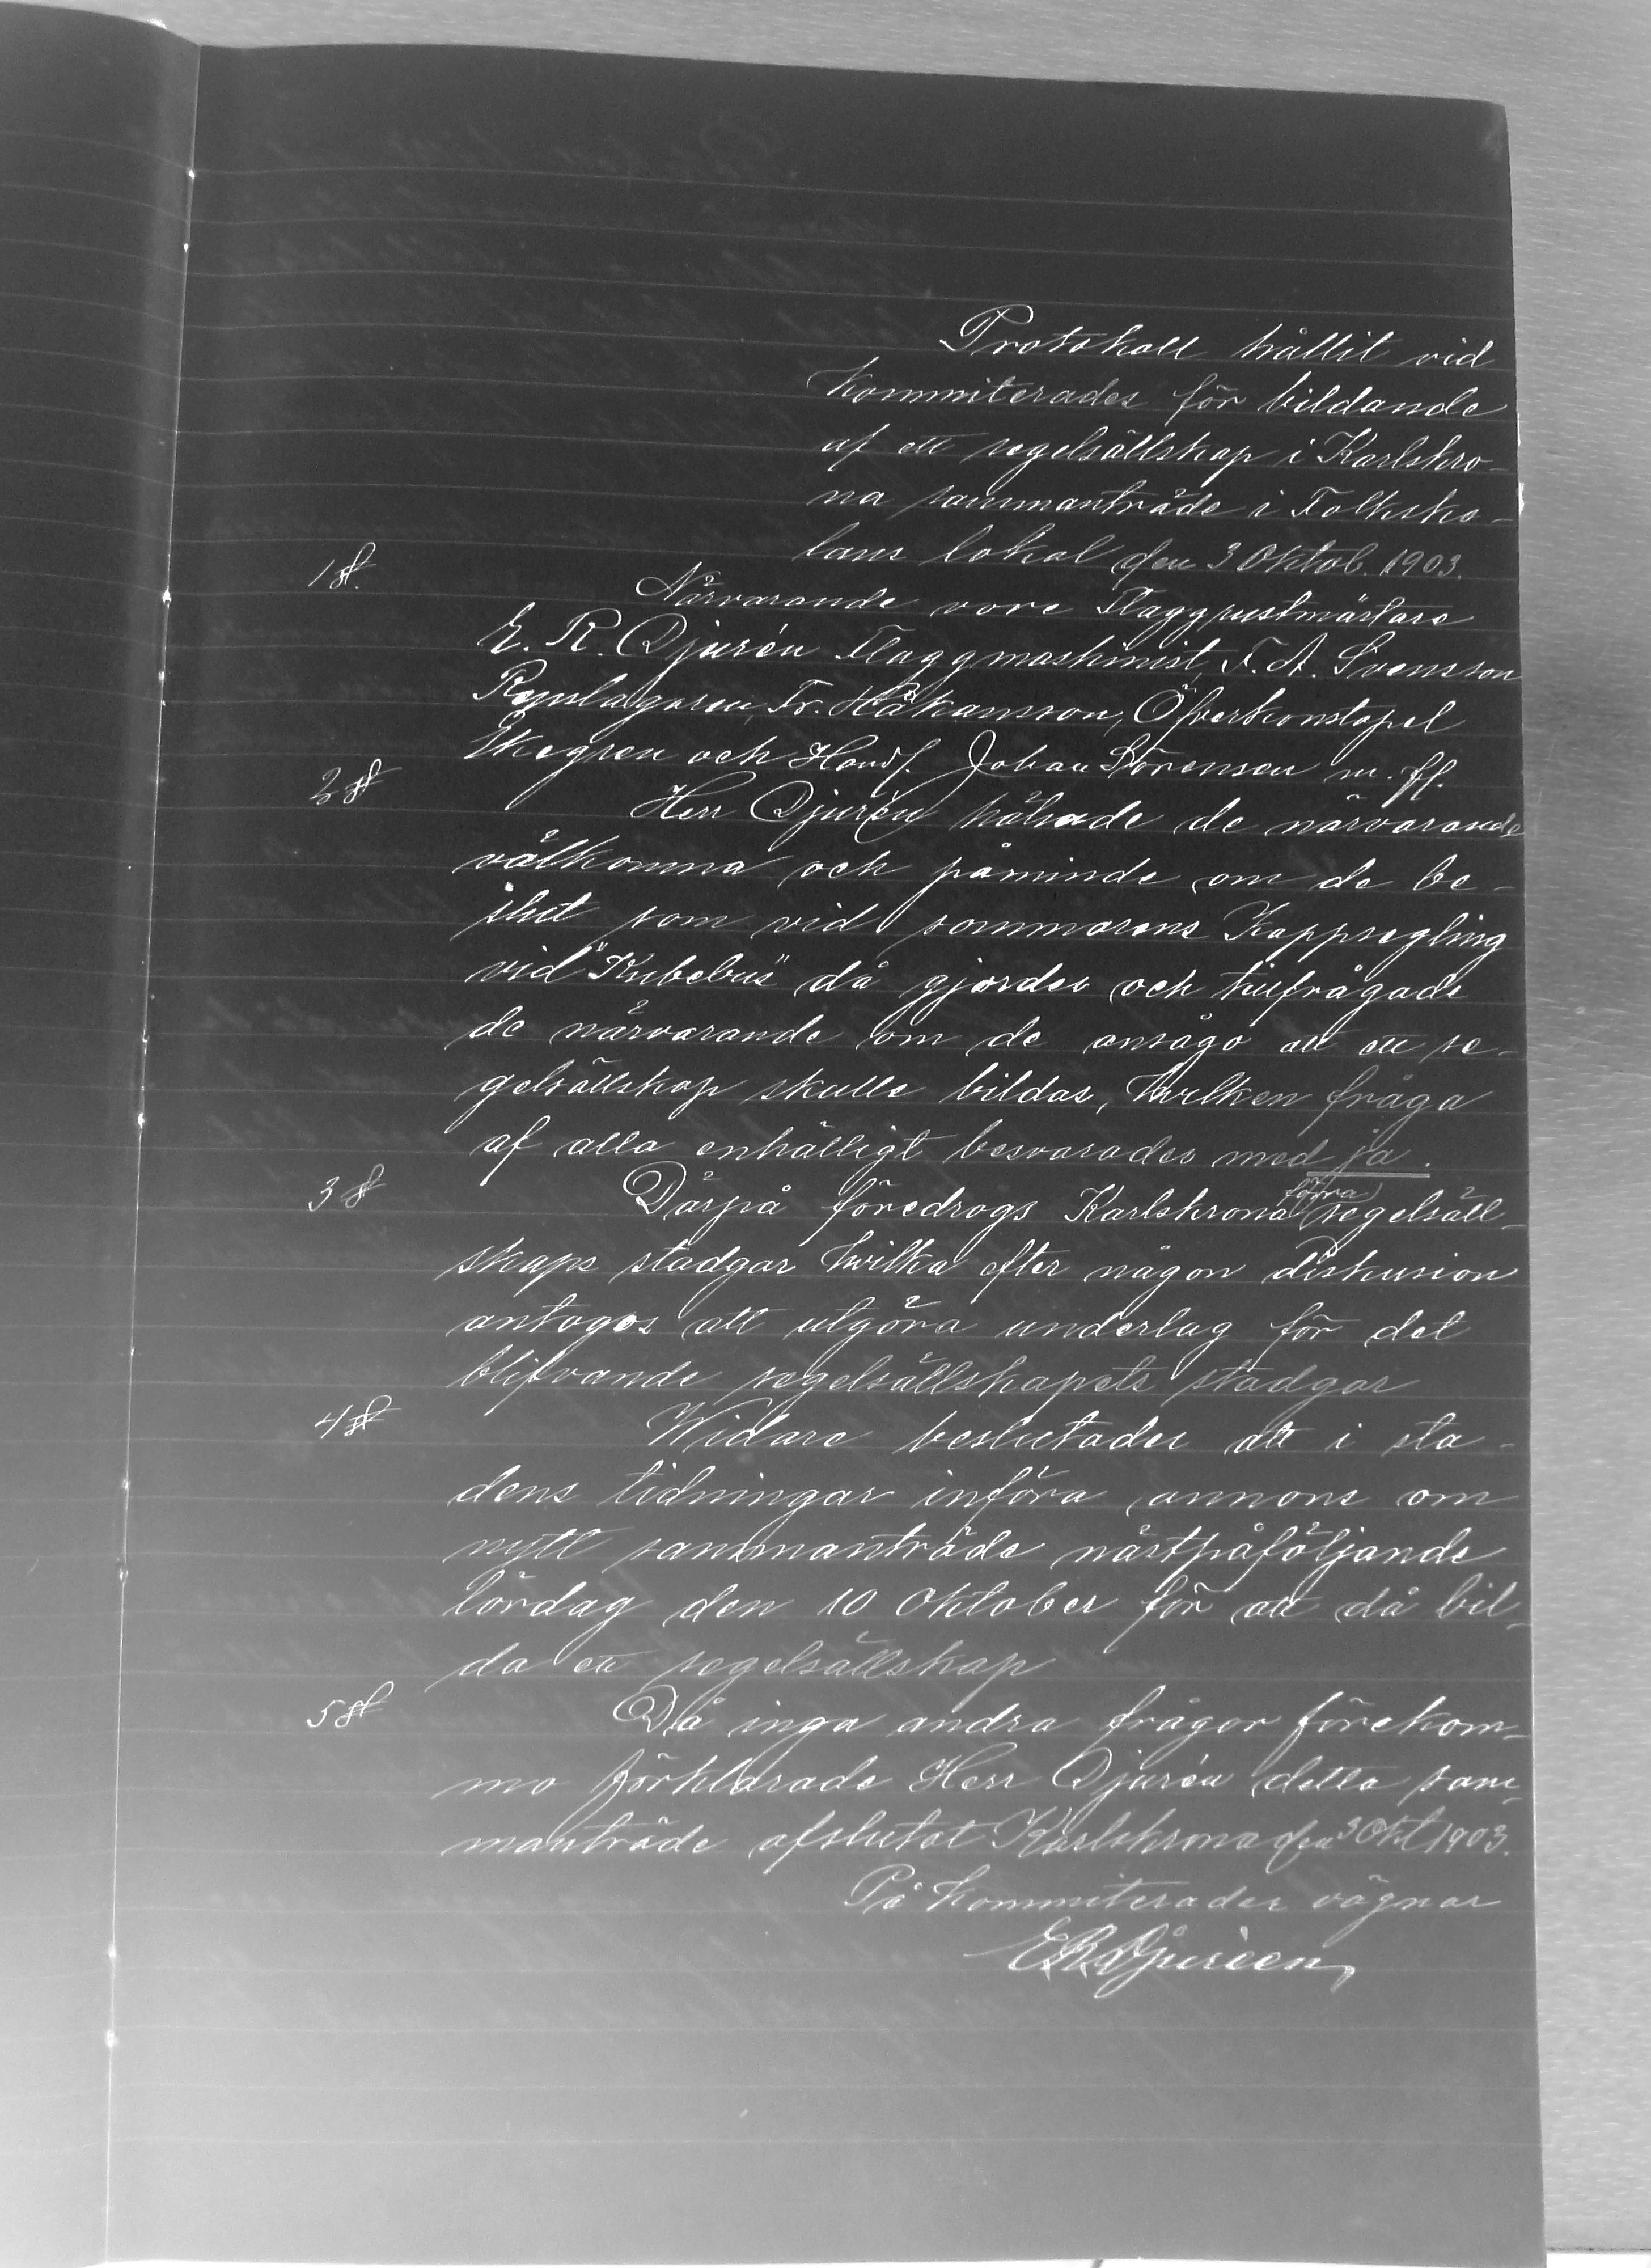 Protokoll hållit vid
kommiterades för bildande
af ett segelsällskap i Karlskro-
na sammanträde i Folksko-
lans lokal den 3 Oktob. 1903.
1 §.
Närvarande vore Flaggrustmästare
E. R. Djurén Flaggmaskinist, F. A. Svensson
Repslagaren, Fr. Håkansson, Öfverkonstapel
Ekegren och Handl. Johan Sörensen m. fl.
2 §
Herr Djurén hälsade de närvarande
välkomna och påminde om de be-
slut som vid sommarens Kappsegling
vid "Kubebus" då gjordes och tillfrågade
de närvarande om de ansågo att ett se-
gelsällskap skulle bildas, hvilken fråga
af alla enhälligt besvarades med ja.
3 §
Därpå föredrogs Karlskrona förra segelsäll-
skaps stadgar hvilka efter någon diskusion
antogos att utgöra underlag för det
blifvande segelsällskapets stadgar
4 §
Widare beslutades att i sta-
dens tidningar införa annons om
nytt sammanträde nästpåföljande
lördag den 10 Oktober för att då bil-
da ett segelsällskap
5 §
Då inga andra frågor förekom-
mo förklarade Herr Djurén detta sam-
manträde afslutat Karlskrona den 3 Okt 1903.
På kommiterades vägnar
E R Djuréen